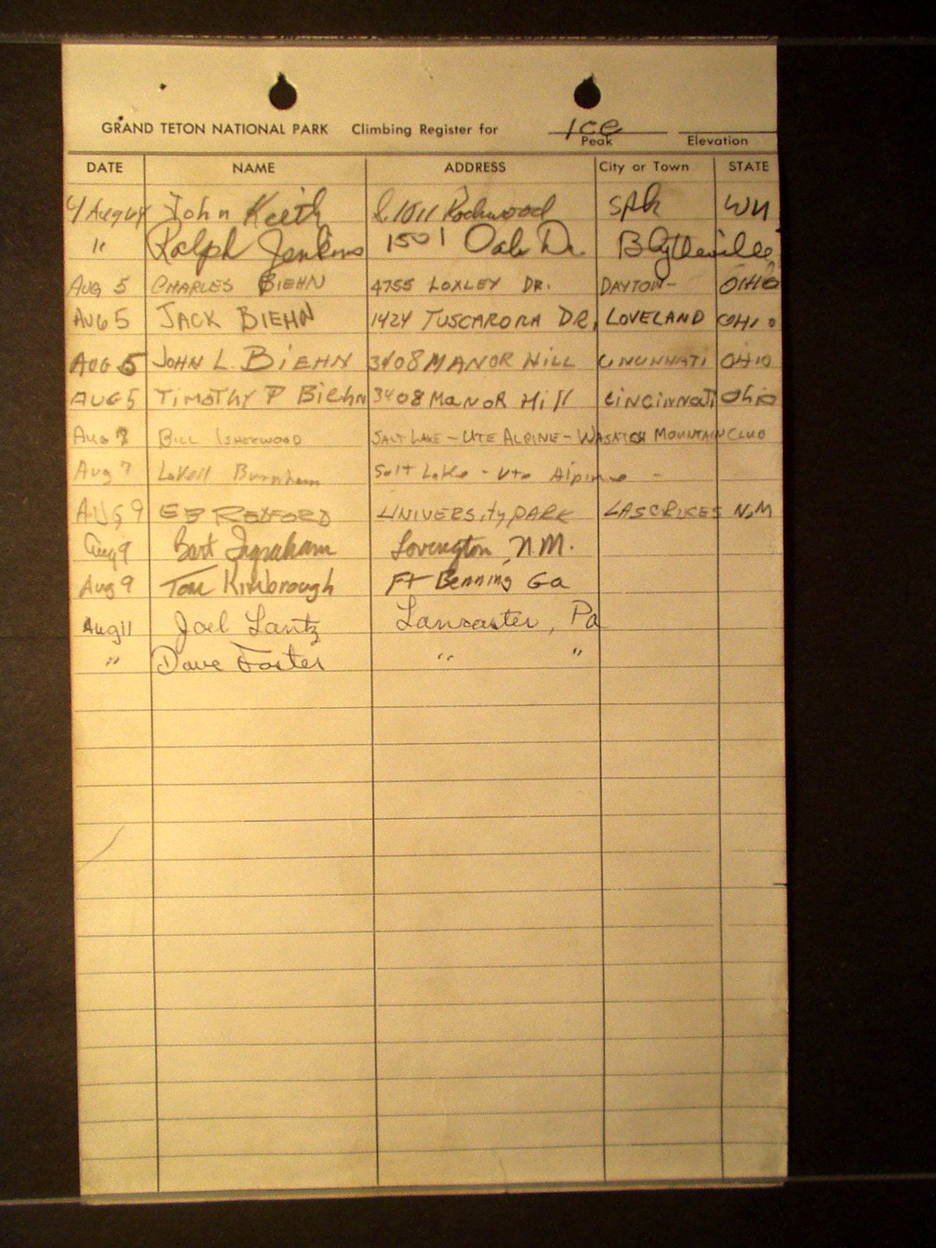 GRAND TETON NATIONAL PARK Climbing Register for Ice
Peak Elevation
DATE NAME ADDRESS City or Town STATE
John Keith S. 1011 Rockwood Spk WN
" Ralph Jenkins 1501 Oak Dr. Blytheville
AUG 5 CHARLES BIEHN 4755 LOXLEY DR. DAYTON- OHIO
AUG 5 JACK BIEHN 1424 TUSCARORA DR. LOVELAND OHIO
AUG 5 JOHN L. BIEHN 3408 MANOR HILL CINCINNATI OHIO
AUG 5 TIMOTHY P Biehn 3408 MANOR Hill CINCINNATI Ohio
Aug BILL ISHERWOOD SALT LAKE - UTE ALPINE - WASATCH MOUNTAIN CLUB
Aug 7 Burnham Salt Lake - Ute Alpine -
AUG 9 ED REXFORD UNIVERSITY PARK LASCRUCES N.M
Aug 9 Bart Ingraham Lovington, N.M.
Aug 9 Tom Kimbrough Ft Benning Ga
Aug 11 Joel Lantz Lancaster, Pa
" Dave Foster " "